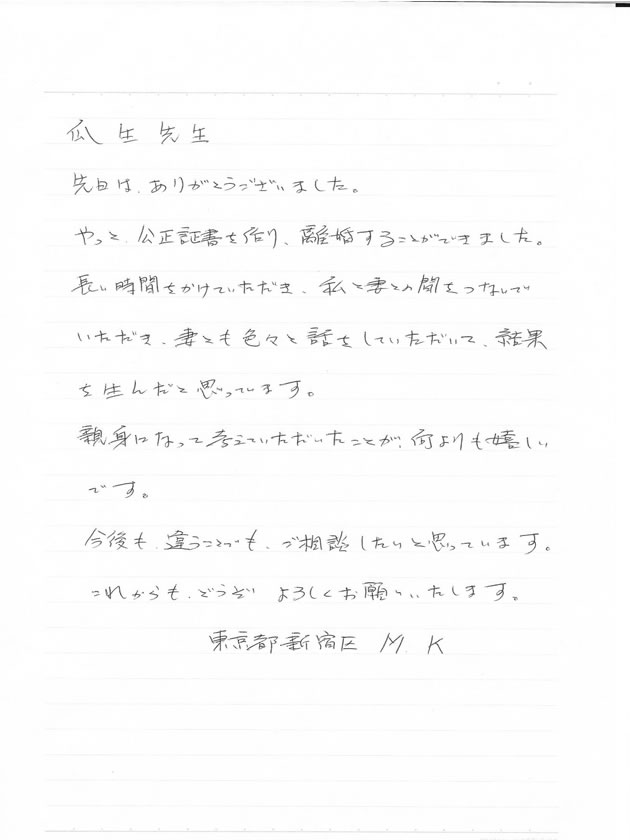 瓜生先生
先日は、ありがとうございました。
やっと、公正証書を作り、離婚することができました。
長い時間をかけていただき、私と妻との間をつないで
いただき、妻とも色々と話をしていただいて、結果
を生んだと思っています。
親身になって考えていただいたことが、何よりも嬉しい
です。
今後も、違うことでも、ご相談したいと思っています。
これからも、どうぞ よろしくお願いいたします。
東京都新宿区 M.K